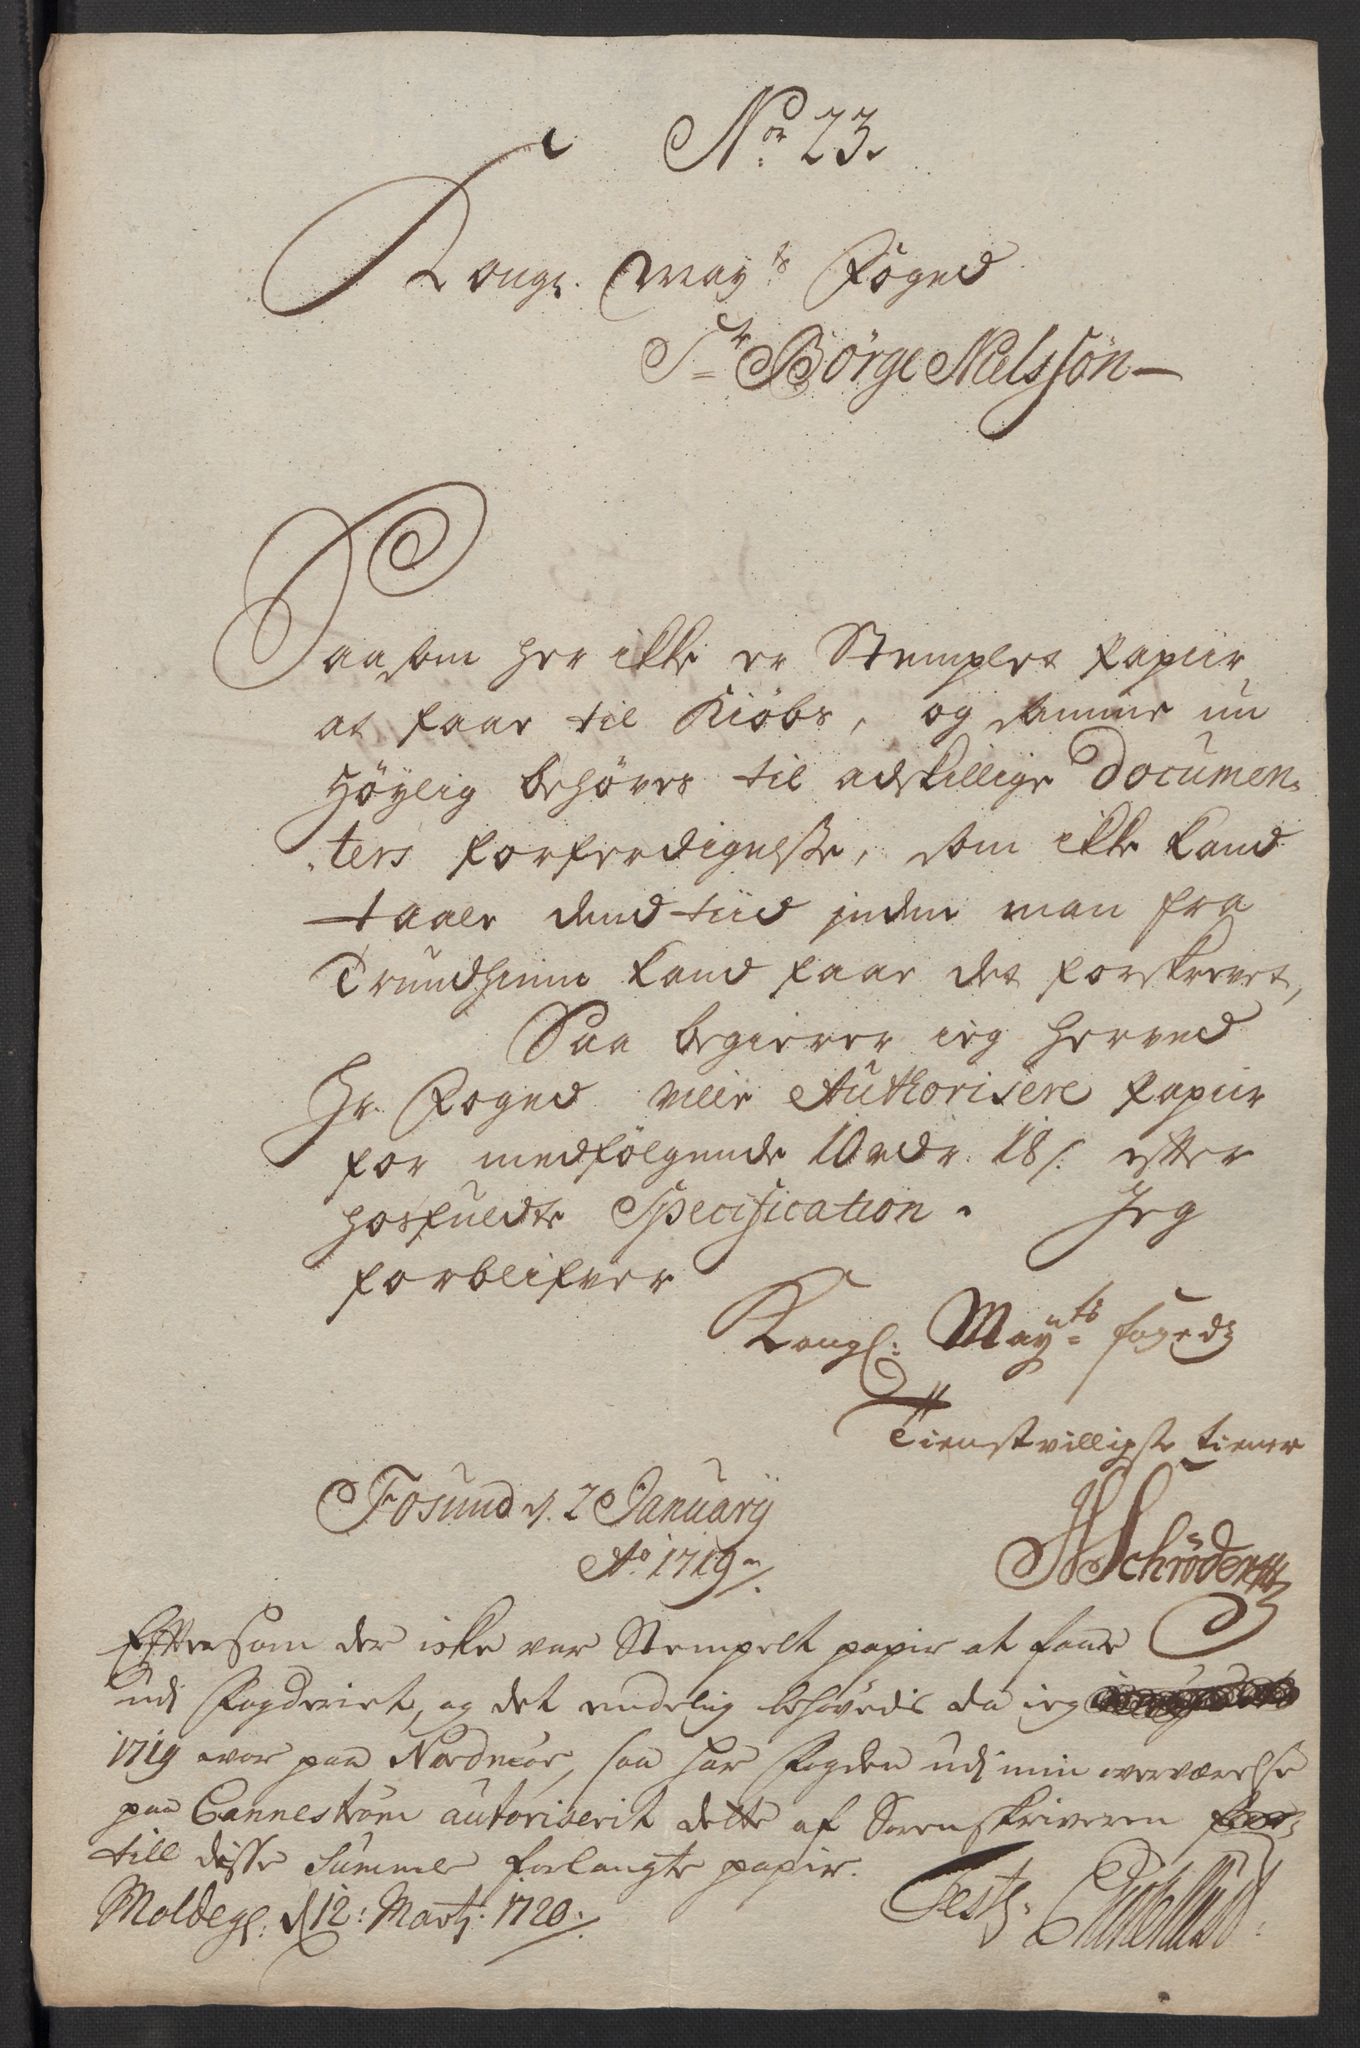 No. 23.
Kongl. Mayts Foged
Sr Börge Nielssön
Saasom her ikke er Stemplet Papiir
at faae til Kiöbs, og samme nu
Höylig behöves til adskillige Documen-
ters forferdigelsse, som ikke kand
taale dend tiid inden man fra
Trundhiem kand faae det forskrevet,
Saa begierer ieg herved
Hr. Foged ville Authorisere Papiir
for medfölgende 10 rdr 18 s. efter
hosfuldte Specification. Jeg
forblifver
Kongl: Mayts fogeds
Tienstvilligste tiener
Fosund d. 2 January
Ao. 1719
Schröder
Effter som der icke var Stempelt papir at faae
udj Fogderiet, og det endelig behövedis da ieg
1719 war paa Nordmör, saa har Fogden udj min overværelse
paa Canneström autoriserit dette af Sorenskriveren
till disse Summer forlangte papir.
Moldegl: d 12: Martj: 1720.
Test: